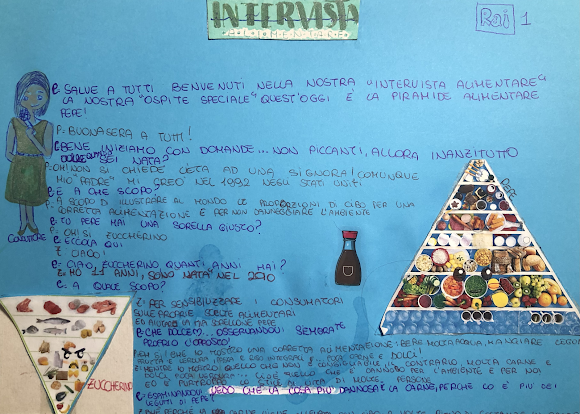 INTERVISTA
Rai 1
C: SALVE A TUTTI BENVENUTI NELLA NOSTRA "INTERVISTA ALIMENTARE"
LA NOSTRA "OSPITE SPECIALE" QUEST'OGGI È LA PIRAMIDE ALIMENTARE
PEPE!
P: BUONASERA A TUTTI!
C: BENE INIZIAMO CON DOMANDE... NON PICCANTI, ALLORA INANZITUTTO
SEI NATA?
P: OH! NON SI CHIEDE L'ETÀ AD UNA SIGNORA! COMUNQUE
MIO "PADRE" MI CREÒ NEL 1992 NEGLI STATI UNITI.
C: E A CHE SCOPO?
P: A SCOPO DI ILLUSTRARE AL MONDO LE PROPORZIONI DI CIBO PER UNA
CORRETTA ALIMENTAZIONE E PER NON DANNEGGIARE L'AMBIENTE
C: TU PEPE HAI UNA SORELLA GIUSTO?
P: OH! SI ZUCCHERINO
C: ECCOLA QUI
Z: CIAO!
C: CIAO, ZUCCHERINO QUANTI ANNI HAI?
Z: HO 11 ANNI, SONO NATA NEL 2010
C: A QUALE SCOPO?
Z: PER SENSIBILIZZARE I CONSUMATORI
SULLE PROPRIE SCELTE ALIMENTARI
ED AIUTARE LA MIA SORELLONE PEPE
C: CHE DOLCE!... OSSERVANDOVI SEMBRATE
PROPRIO L'OPPOSTO!
P: EH SI! IO MOSTRO UNA CORRETTA ALIMENTAZIONE: BERE MOLTA ACQUA, MANGIARE
FRUTTA E VERDURA, CEREALI INTEGRALI E POCA CARNE E DOLCI!
Z: MENTRE IO MOSTRO QUELLO CHE NON È CONSIGLIABILE IN CONTRARIO, MOLTA CARNE E
POCHI VERDURA CIOÈ QUELLO CHE È DANNOSO PER L'AMBIENTE E PER NOI
ED È PURTROPPO LO STILE DI VITA DI MOLTE PERSONE
C: ESAMINANDOVI VEDO CHE LA COSA PIÙ DANNOSA È LA CARNE, PERCHÉ LO È PIÙ DEI
DI PEPE?
CONDUTTRICE
PEPE
ZUCCHERINO